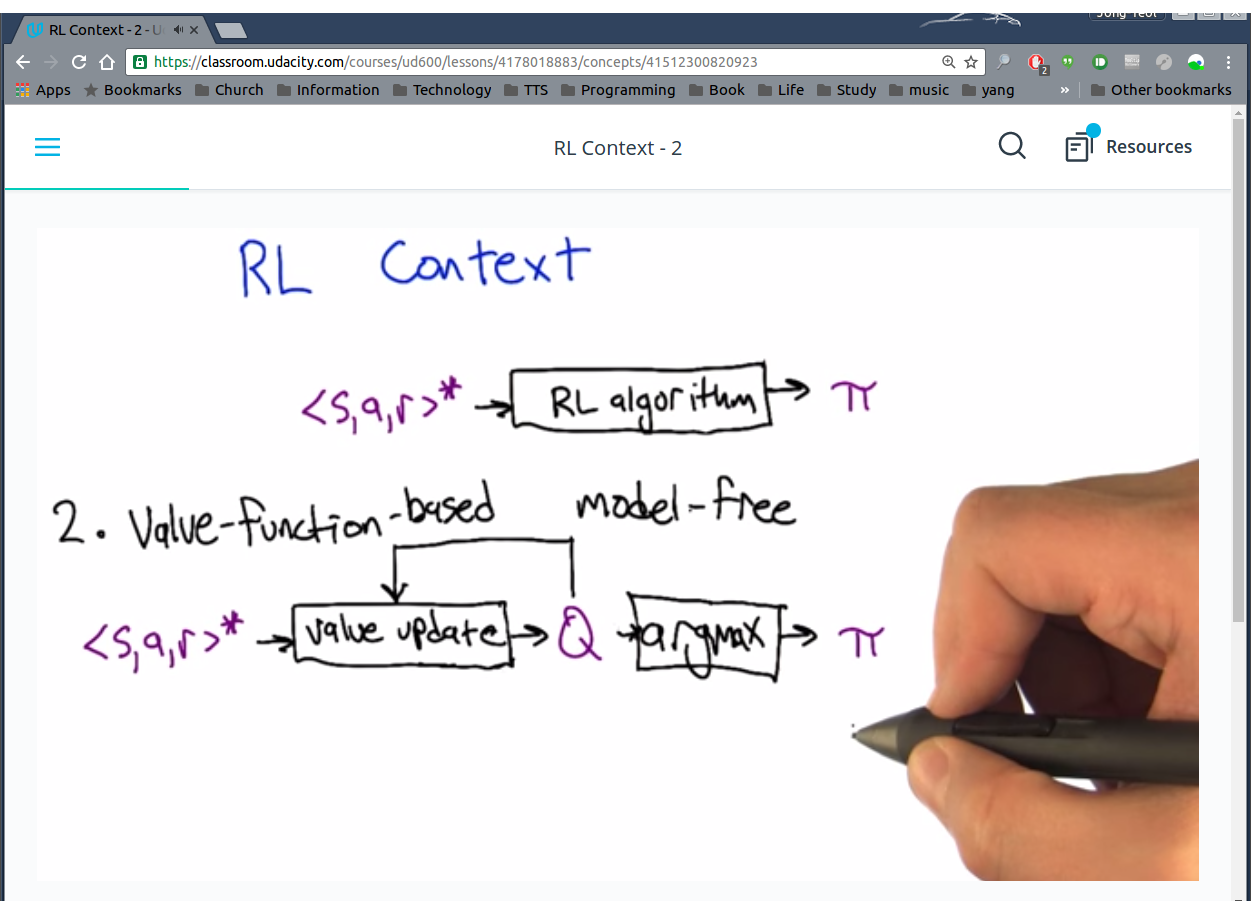 RL Context - 2 - U
https://classroom.udacity.com/courses/ud600/lessons/4178018883/concepts/41512300820923
2
Apps Bookmarks Church Information Technology TTS Programming Book Life Study music yang » Other bookmarks
RL Context - 2
Resources
RL Context
<s,a,r>* → RL algorithm → π
2. Value-function-based model-free
<s,a,r>* → value update → Q → argmax → π